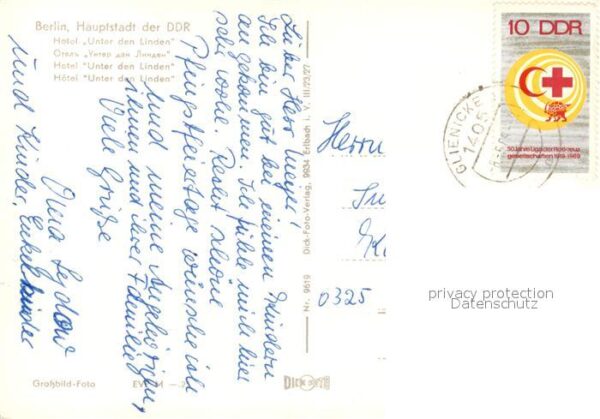 Berlin, Hauptstadt der DDR
Hotel „Unter den Linden"
Отель „Унтер ден Линден"
Hotel "Unter den Linden"
Hôtel "Unter den Linden"
Lieber Herr
Ich bin gut bei meinen Kindern
angekommen. Ich fühle mich hier
sehr wohl. Recht schöne
Pfingstfeiertage wünsche ich
und meine Angehörigen,
ihnen und ihrer Familie.
Viele Grüße
Oma Lydow
und Kinder, Enkelkinder
Großbild-Foto
EV
M
Nr. 9619
Dick-Foto-Verlag, 9934 Erlbach i. V. III/23/27
DICK
FOTO
Herrn
0325
10 DDR
50 Jahre Liga der Rotkreuz
gesellschaften 1919-1969
GLIENICKE
1405
privacy protection
Datenschutz